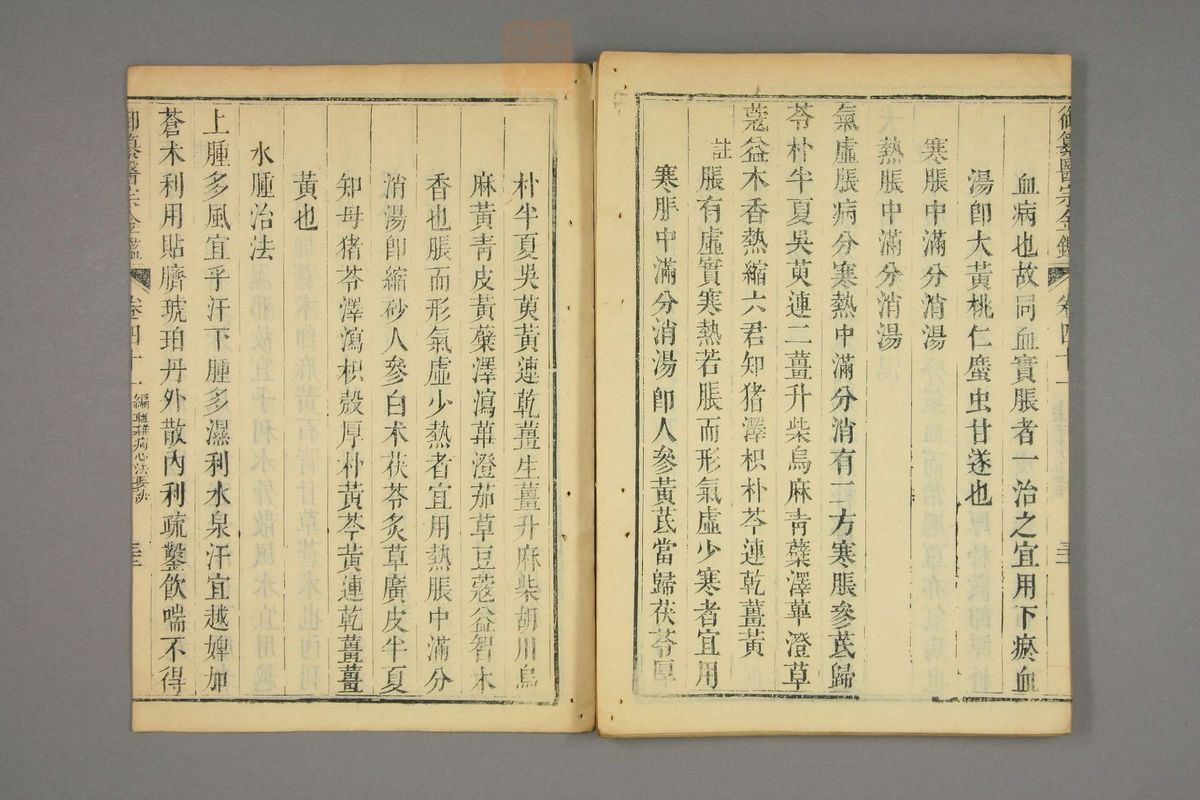 御纂醫宗金鑑 卷四十一
血病也故同血實脹者一治之宜用下瘀血
湯卽大黃桃仁䗪虫甘遂也
寒脹中滿分消湯
熱脹中滿分消湯
氣虛脹病分寒熱中滿分消有二方寒脹參芪歸
苓朴半夏吳萸連二薑升柴烏麻青蘗澤蓽澄草
蔻益木香熱縮六君知猪澤枳朴芩連乾薑黃
註 脹有虛實寒熱若脹而形氣虛少寒者宜用
寒脹中滿分消湯卽人參黃芪當歸茯苓厚
朴半夏吳萸黃連乾薑生薑升麻柴胡川烏
麻黃青皮黃蘗澤瀉蓽澄茄草豆蔻益智木
香也脹而形氣虛少熱者宜用熱脹中滿分
消湯卽縮砂人參白朮茯苓炙草廣皮半夏
知母猪苓澤瀉枳殼厚朴黃芩黃連乾薑薑
黃也
水腫治法
上腫多風宜乎汗下腫多濕利水泉汗宜越婢加
蒼朮利用貼臍琥珀丹外散內利疏鑿飲喘不得
御纂醫宗金鑑 卷四十一 編輯雜病心法要訣